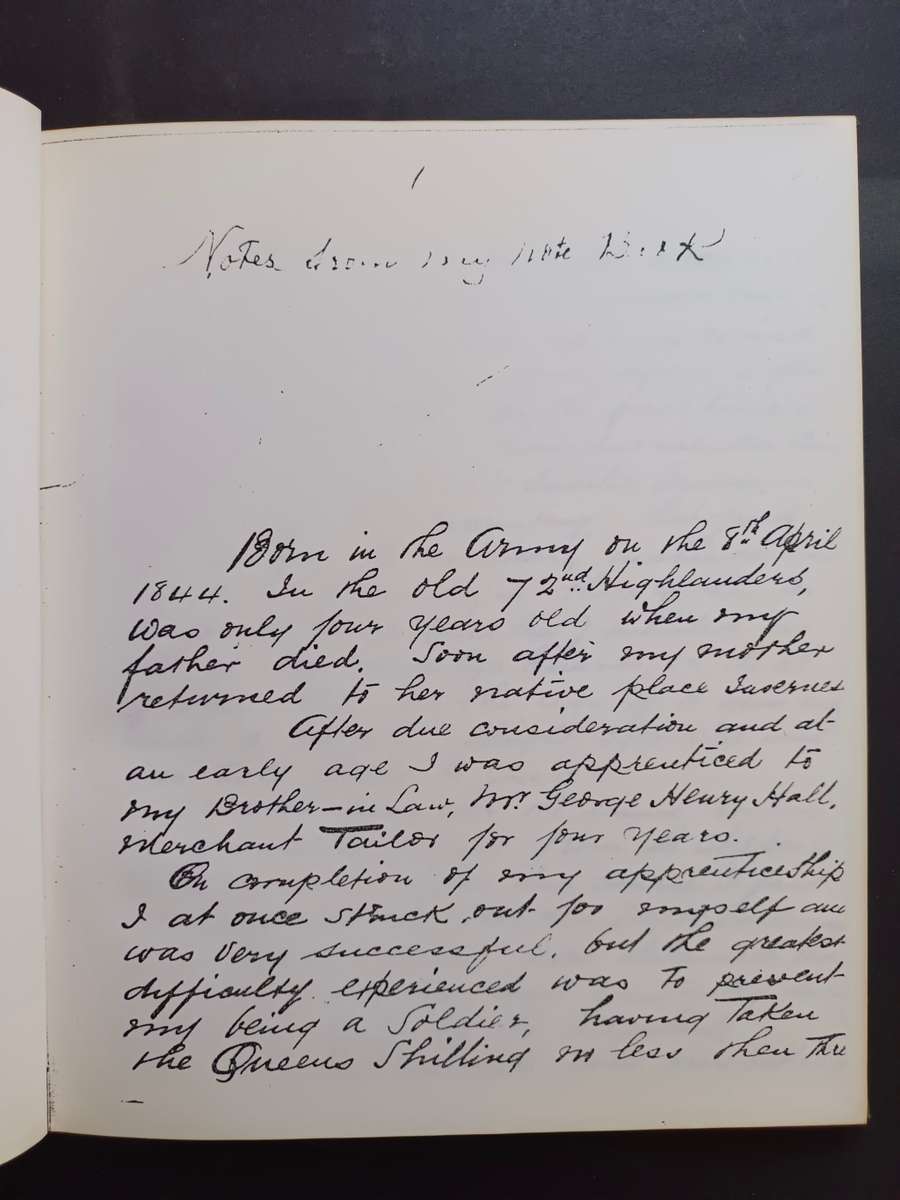 1
Notes from my note Book
Born in the Army on the 8th April
1844. In the old 72nd Highlanders,
was only four years old when my
father died. Soon after my mother
returned to her native place Invernes
After due consideration and at
an early age I was apprenticed to
my Brother-in Law, Mr. George Henry Hall,
Merchant Tailor for four years.
On completion of my apprenticeship
I at once struck out for myself an
was very successful. but the greatest
difficulty experienced was to prevent
my being a Soldier, having Taken
the Queens Shilling no less then Thre